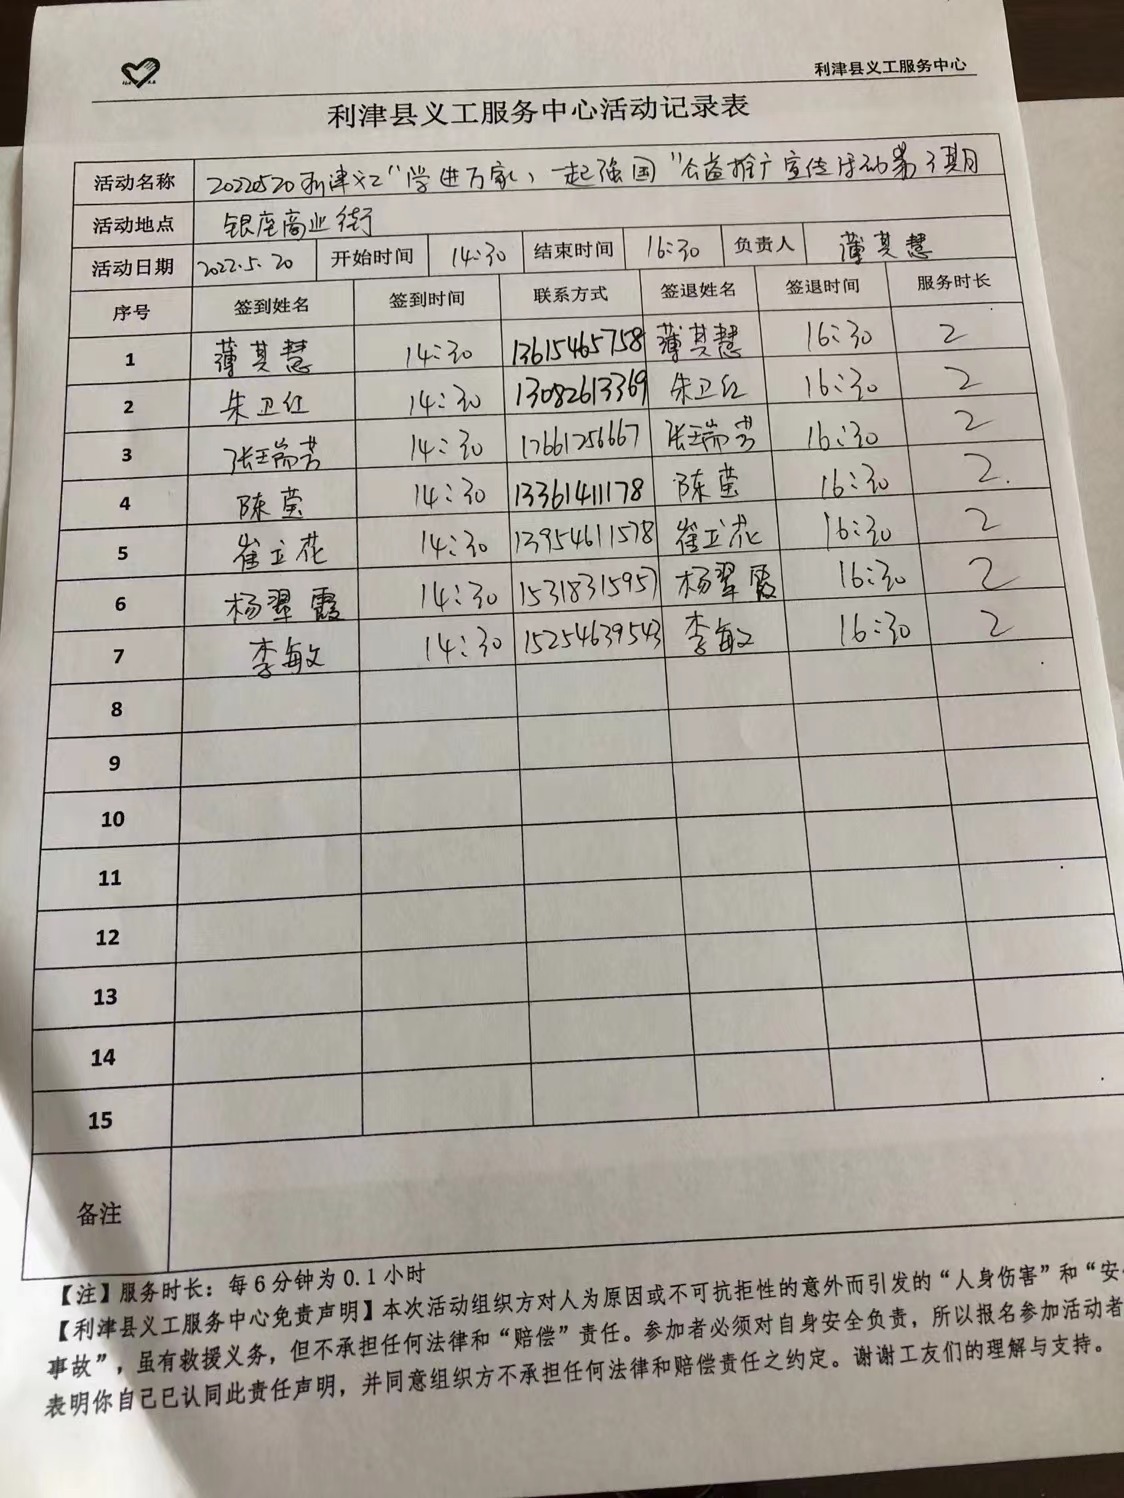 利津县义工服务中心
利津县义工服务中心活动记录表
活动名称 20220520利津义工“学进万家、一起强国”公益推广宣传活动第3期
活动地点 银座商业街
活动日期 2022.5.20 开始时间 14:30 结束时间 16:30 负责人 薄其慧
序号 签到姓名 签到时间 联系方式 签退姓名 签退时间 服务时长
1 薄其慧 14:30 13615465758 薄其慧 16:30 2
2 朱卫红 14:30 13082613369 朱卫红 16:30 2
3 张瑞芳 14:30 17661256667 张瑞芳 16:30 2
4 陈莹 14:30 13361411178 陈莹 16:30 2.
5 崔立花 14:30 13954611578 崔立花 16:30 2
6 杨翠霞 14:30 15318315957 杨翠霞 16:30 2
7 李敏 14:30 15254639543 李敏 16:30 2
8
9
10
11
12
13
14
15
备注
【注】服务时长：每6分钟为0.1小时
【利津县义工服务中心免责声明】本次活动组织方对人为原因或不可抗拒性的意外而引发的“人身伤害”和“安
事故”，虽有救援义务，但不承担任何法律和“赔偿”责任。参加者必须对自身安全负责，所以报名参加活动者
表明你自己已认同此责任声明，并同意组织方不承担任何法律和赔偿责任之约定。谢谢工友们的理解与支持。